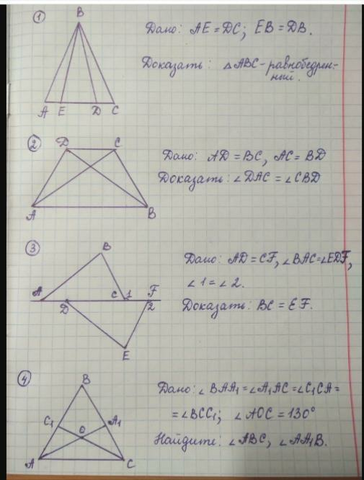 1
B
A E D C
Дано: AE = DC; EB = DB.
Доказать: △ABC - равнобедрен-
ный.
2
D C
A B
Дано: AD = BC, AC = BD
Доказать: ∠DAC = ∠CBD
3
B
A D C 1 F 2
E
Дано: AD = CF, ∠BAC = ∠EDF,
∠1 = ∠2.
Доказать: BC = EF.
4
B
C₁ A₁
O
A C
Дано: ∠BAA₁ = ∠A₁AC = ∠C₁CA =
= ∠BCC₁; ∠AOC = 130°
Найдите: ∠ABC, ∠AA₁B.